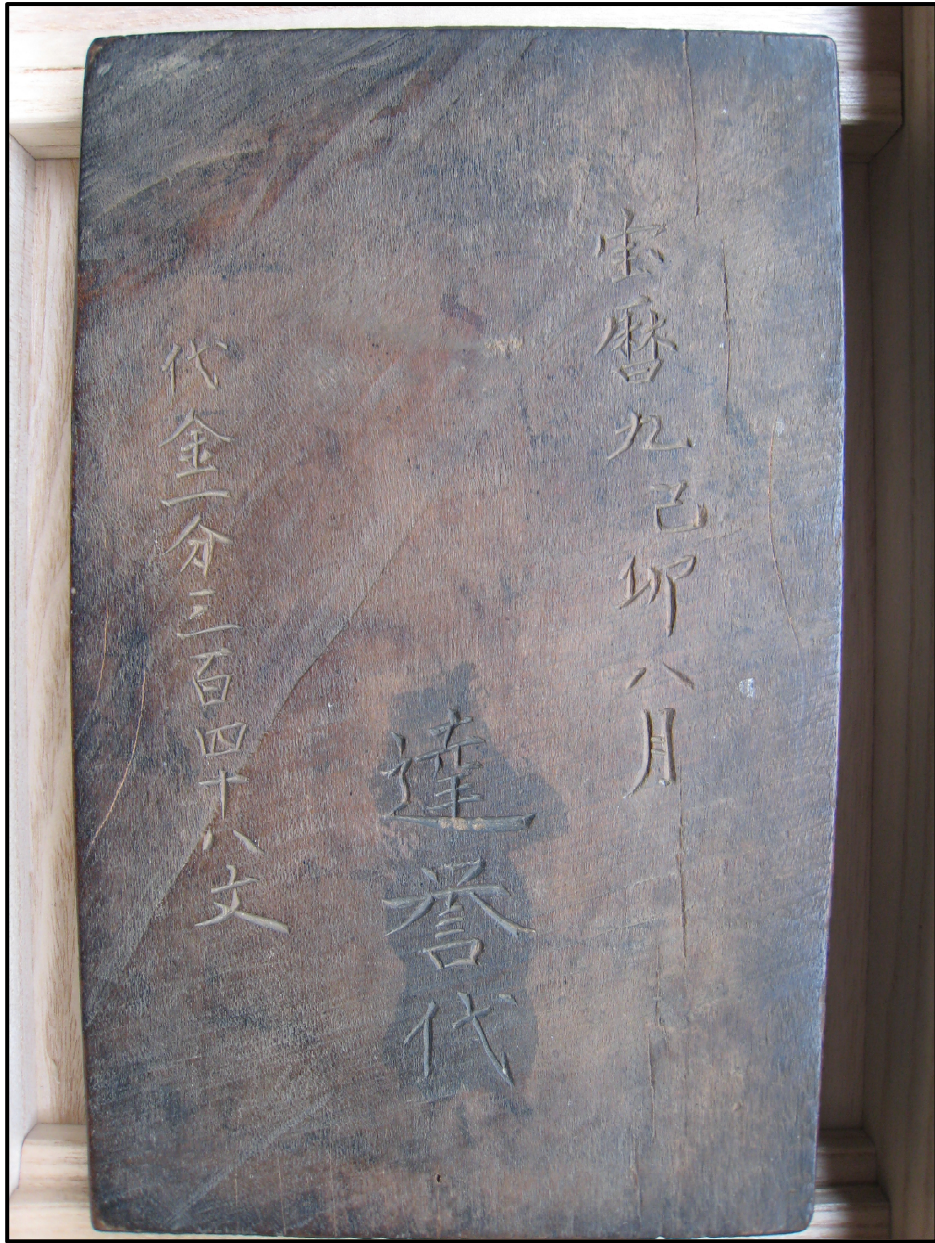 宝暦九己卯八月
達誉代
代金一分三百四十八文